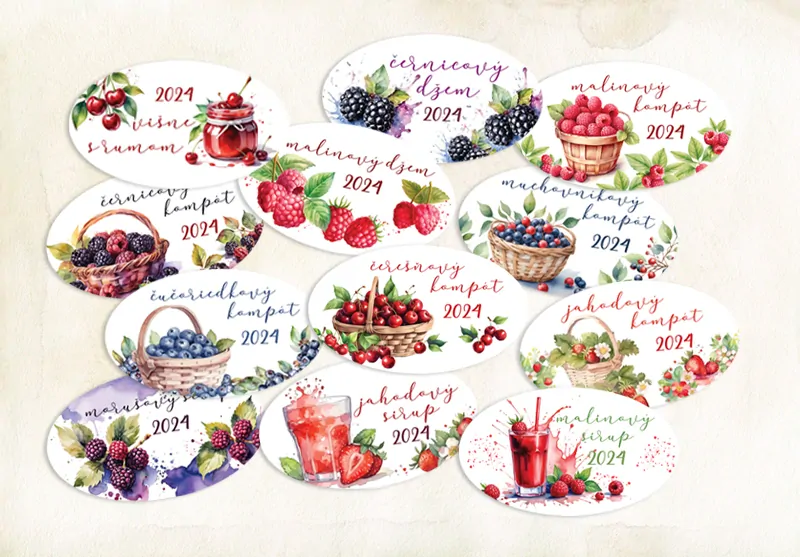 2024
višne
s rumom
černicový
džem
2024
malinový
kompót
2024
malinový džem
2024
černicový
kompót
2024
muchovníkový
kompót
2024
čučoriedkový
kompót
2024
čerešňový
kompót
2024
jahodový
kompót
2024
morušový
2024
jahodový
sirup
2024
malinový
sirup
2024